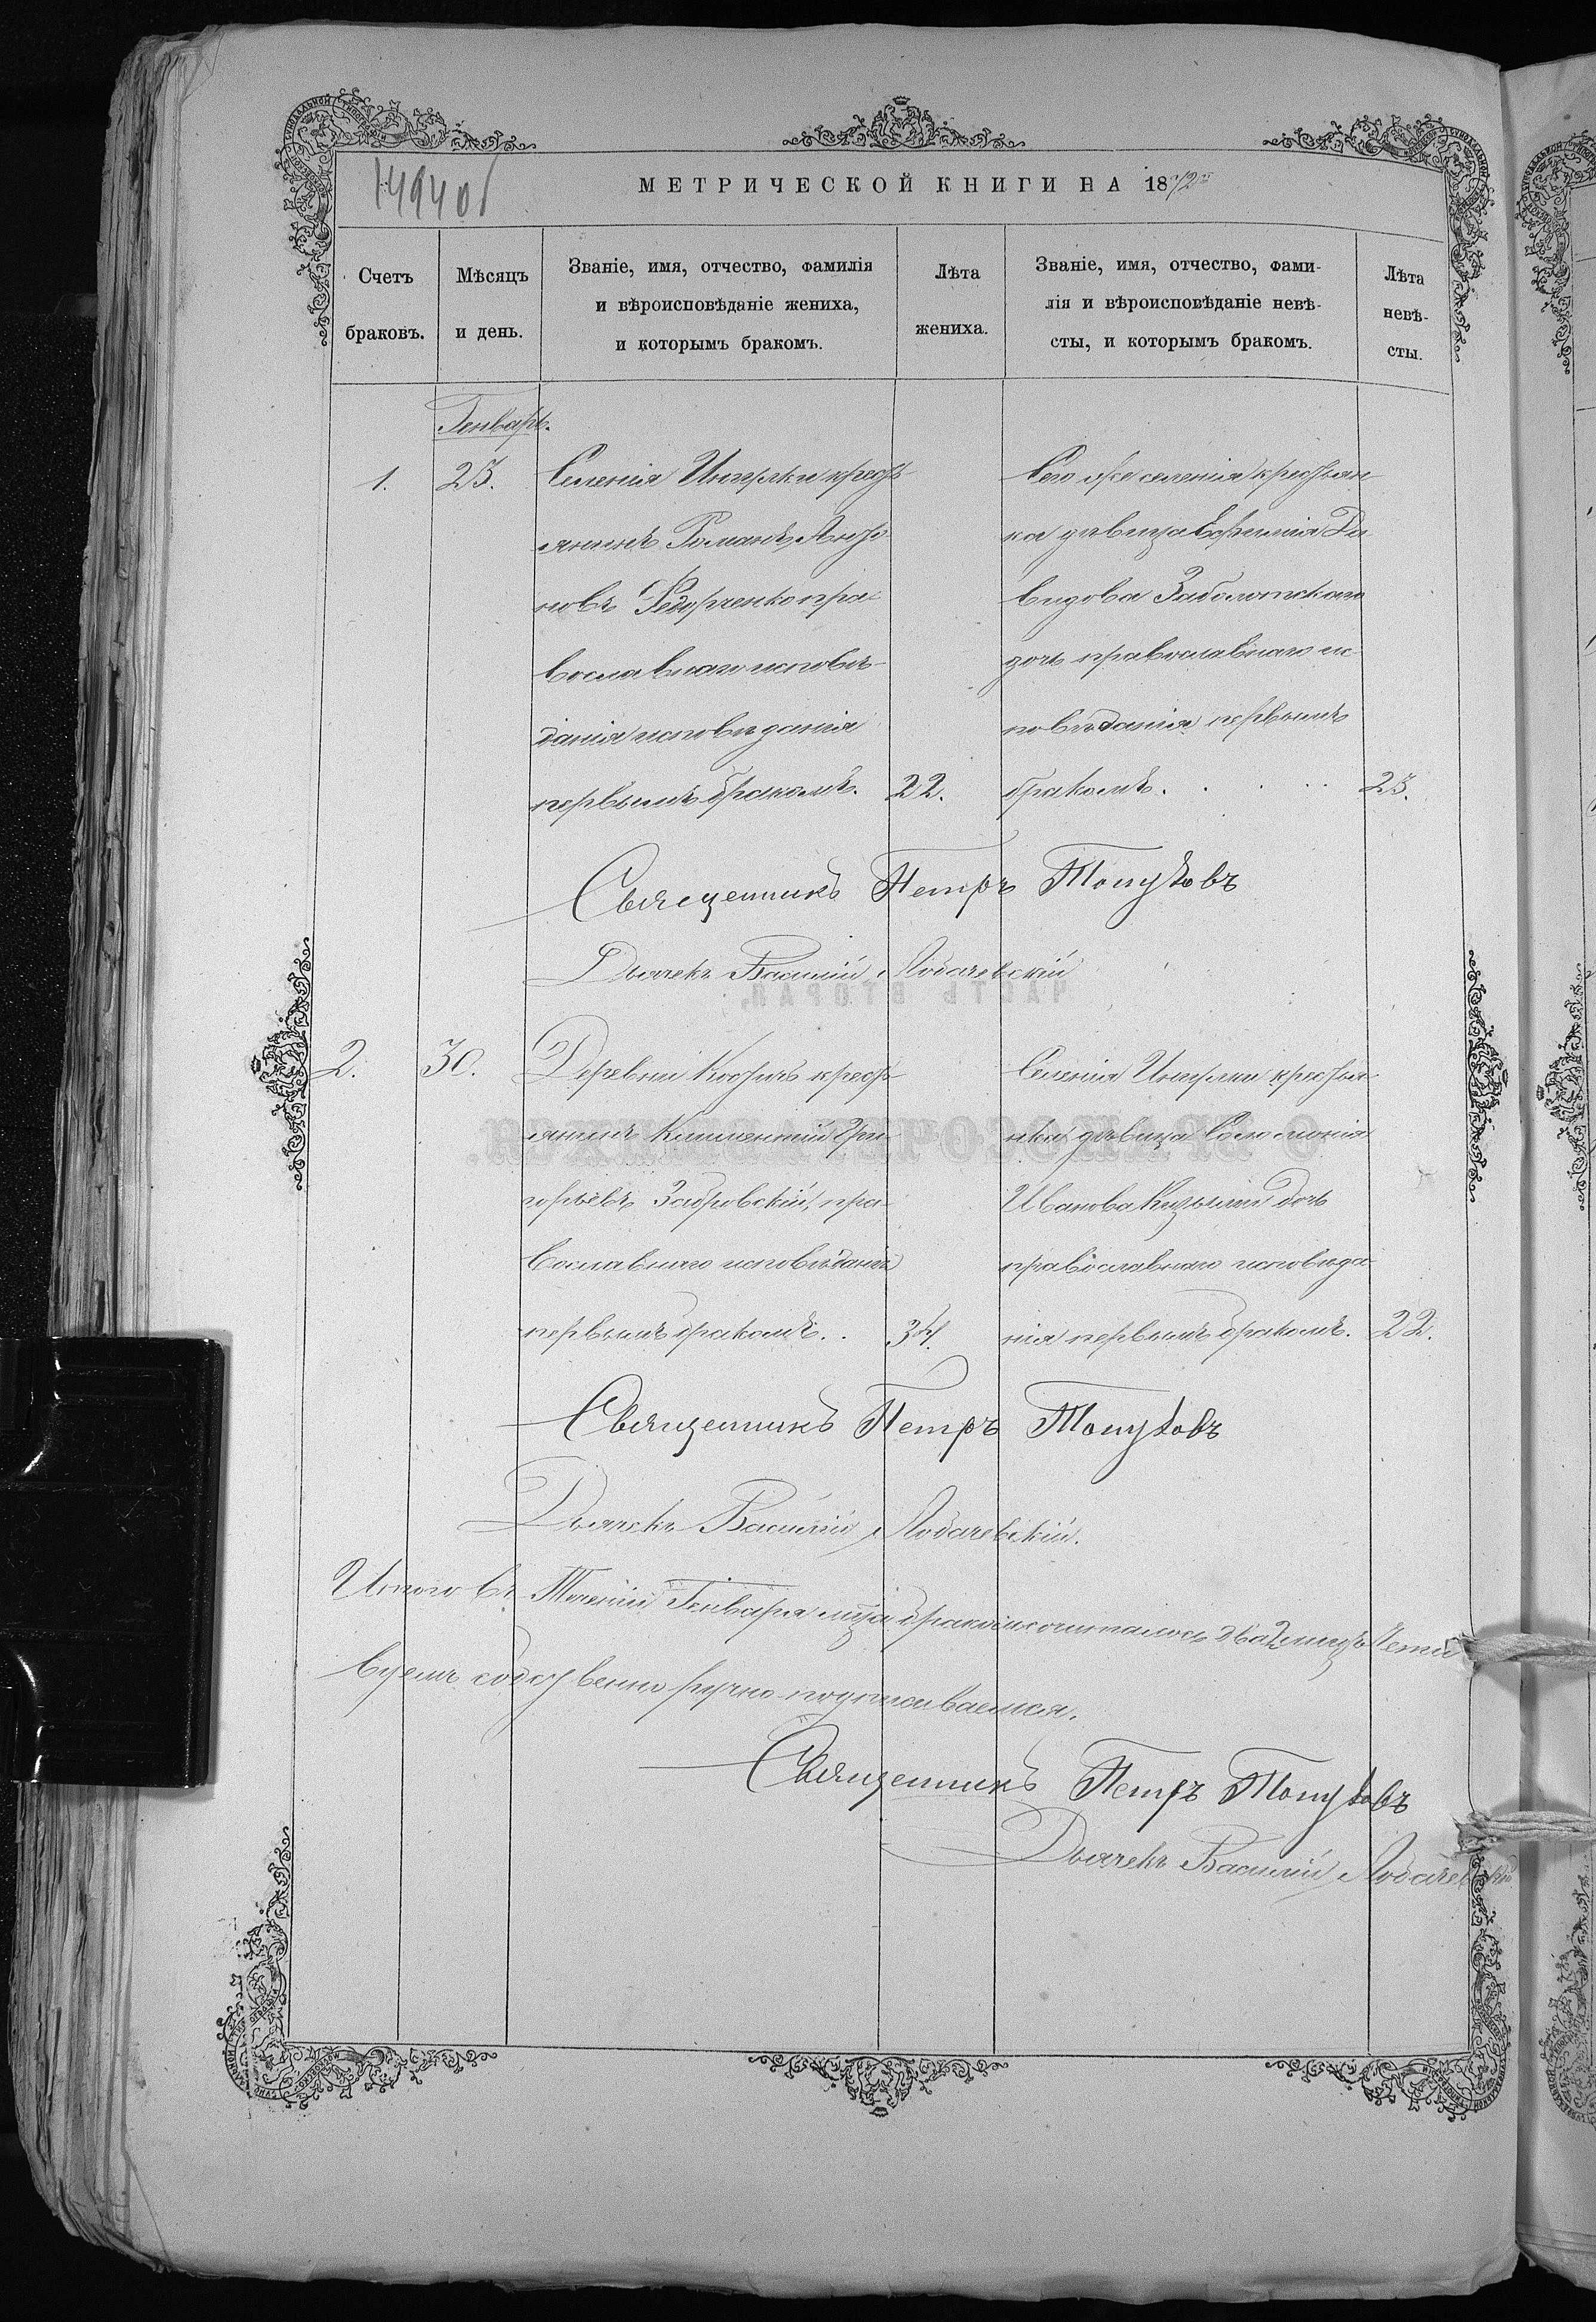 1494 об
МЕТРИЧЕСКОЙ КНИГИ НА 1872
Счетъ браковъ.
Мѣсяцъ и день.
Званіе, имя, отчество, фамилія
и вѣроисповѣданіе жениха,
и которымъ бракомъ.
Лѣта жениха.
Званіе, имя, отчество, фами-
лія и вѣроисповѣданіе невѣ-
сты, и которымъ бракомъ.
Лѣта
невѣ-
сты.
Генварь.
1.
23.
Селенія Ингулки кресть
янинъ Романъ
новъ Федорченко пра
вославнаго исповѣ-
данія исповѣданія
первымъ бракомъ.
22.
Того же селенія крестьян
ка дѣвица Евфимія Да
видова Заболотскаго
дочь православнаго ис-
повѣданія первымъ
бракомъ.
23.
Священникъ Петръ
Дьячекъ Василій Лобачевскій
ЧАСТЬ ВТОРАЯ,
2.
30.
Деревни Костычъ кресть
янинъ Климентій Гри-
горьевъ Забровскій, пра-
вославнаго исповѣданія
первымъ бракомъ.
34.
Селенія Ингулки крестья-
нка дѣвица Соломонія
Иванова дочь
православнаго исповѣда-
нія первымъ бракомъ.
22.
О БРАКОСОЧЕТАВШИХСЯ.
Священникъ Петръ
Дьячекъ Василій Лобачевскій.
Итого въ Теченіи Генваря мца браковъ сочеталось два
въ чемъ собственно ручно подписываемся.
Священникъ Петръ
Дьячекъ Василій Лобачевскій